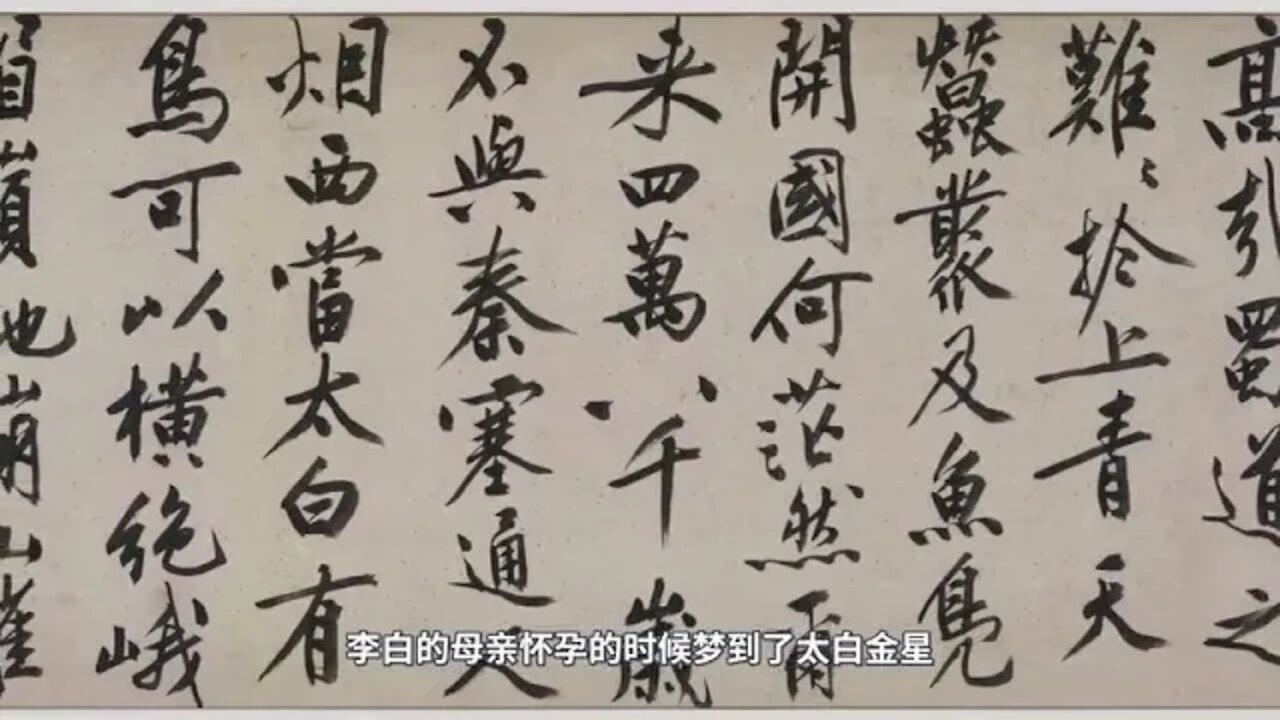 高引蜀道之
難〻扵上青天
蠶叢及魚鳧
開國何茫然爾
来四萬八千歲
不與秦塞通人
烟西當太白有
鳥可以横絶峨
眉巔地崩山摧
李白的母亲怀孕的时候梦到了太白金星